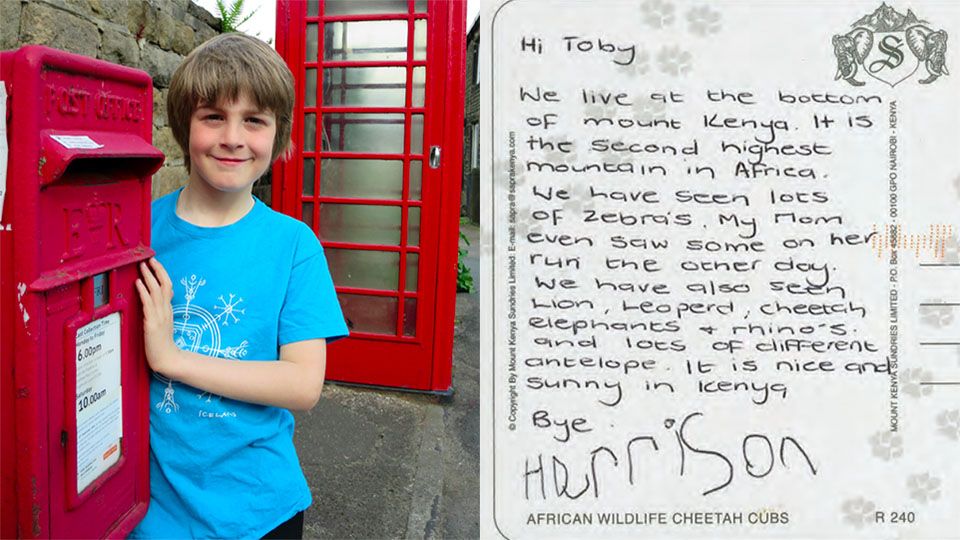 POST OFFICE
E R
Collection Time
Monday to Friday
6.00pm
Saturday
10.00am
ICELAND
S
Hi Toby
We live at the bottom
of mount Kenya. It is
the second highest
mountain in Africa.
We have seen lots
of Zebra's. My Mom
even saw some on her
run the other day.
We have also seen
Lion, Leoperd, cheetah
elephants + rhino's.
and lots of different
antelope. It is nice and
sunny in Kenya
Bye.
Harrison
AFRICAN WILDLIFE CHEETAH CUBS
R 240
© Copyright By Mount Kenya Sundries Limited: E-mail: sapra@saprakenya.com
MOUNT KENYA SUNDRIES LIMITED - P.O. Box 45682 - 00100 GPO NAIROBI - KENYA